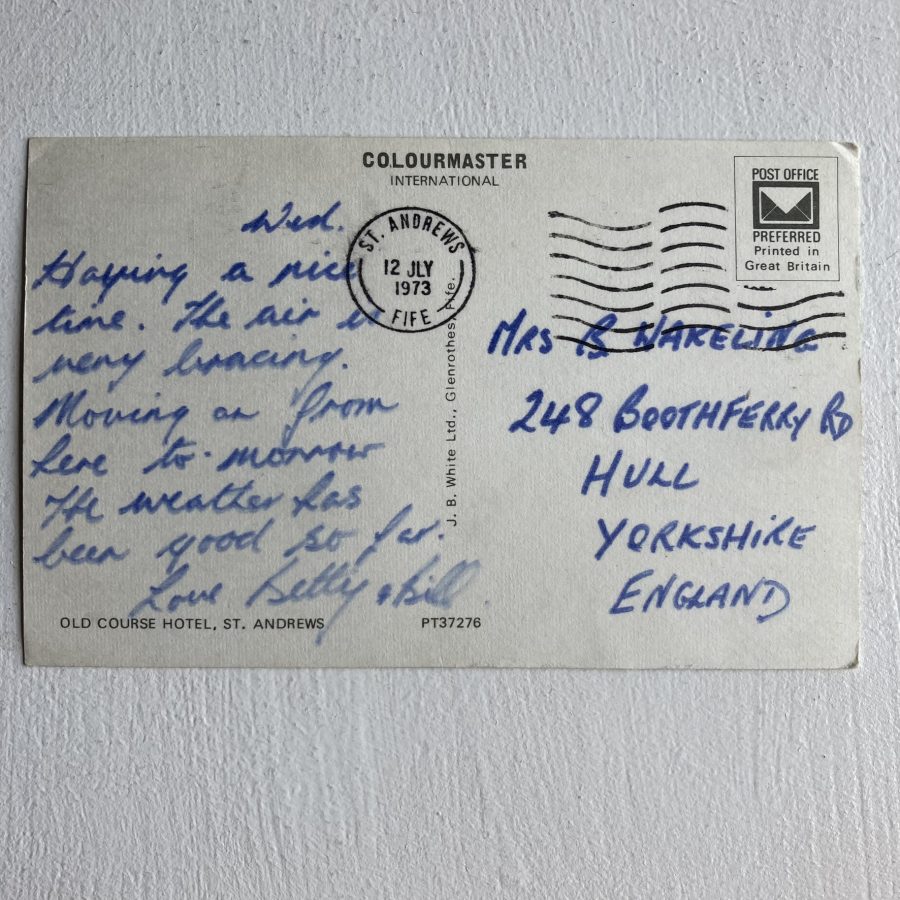 COLOURMASTER
INTERNATIONAL
POST OFFICE
PREFERRED
Printed in
Great Britain
ST. ANDREWS
12 JLY
1973
FIFE
Wed.
Having a nice
time. The air is
very bracing.
Moving on from
here to-morrow
The weather has
been good so far.
Love Betty & Bill.
J. B. White Ltd., Glenrothes, Fife.
MRS B WAKELING
248 BOOTHFERRY RD
HULL
YORKSHIRE
ENGLAND
OLD COURSE HOTEL, ST. ANDREWS
PT37276